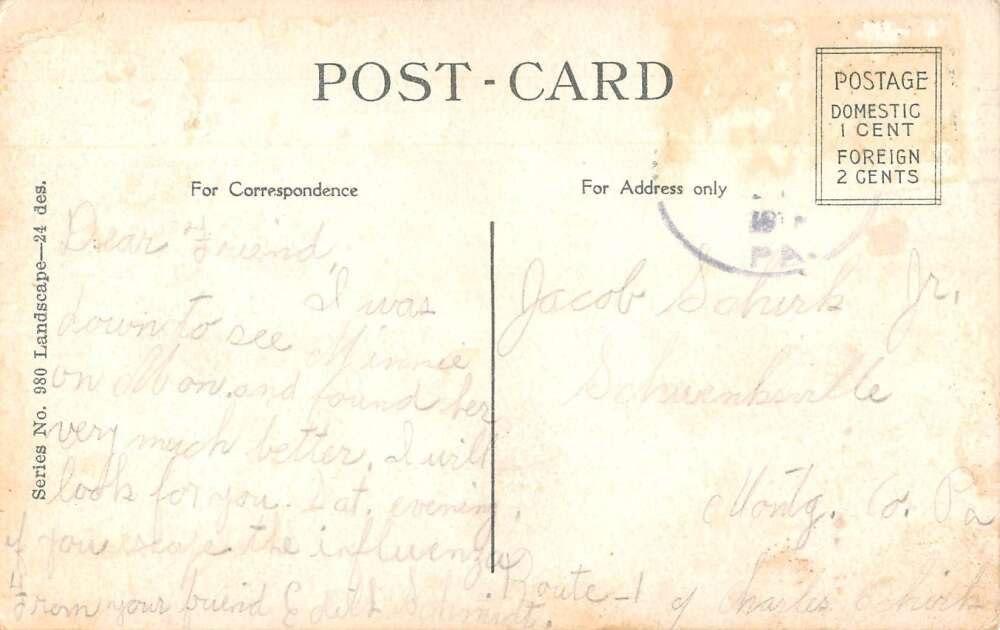 POST-CARD
POSTAGE
DOMESTIC
1 CENT
FOREIGN
2 CENTS
For Correspondence
For Address only
Series No. 980 Landscape—24 des.
PA.
Dear Friend,
I was
down to see Minnie
on Mon. and found her
very much better. I will
look for you. Sat. evening.
if you escape the influenza
From your friend Edith Schmidt.
Jacob Schirk Jr.
Schwenksville
Montg. Co. Pa
Route-1 of Charles Schirk